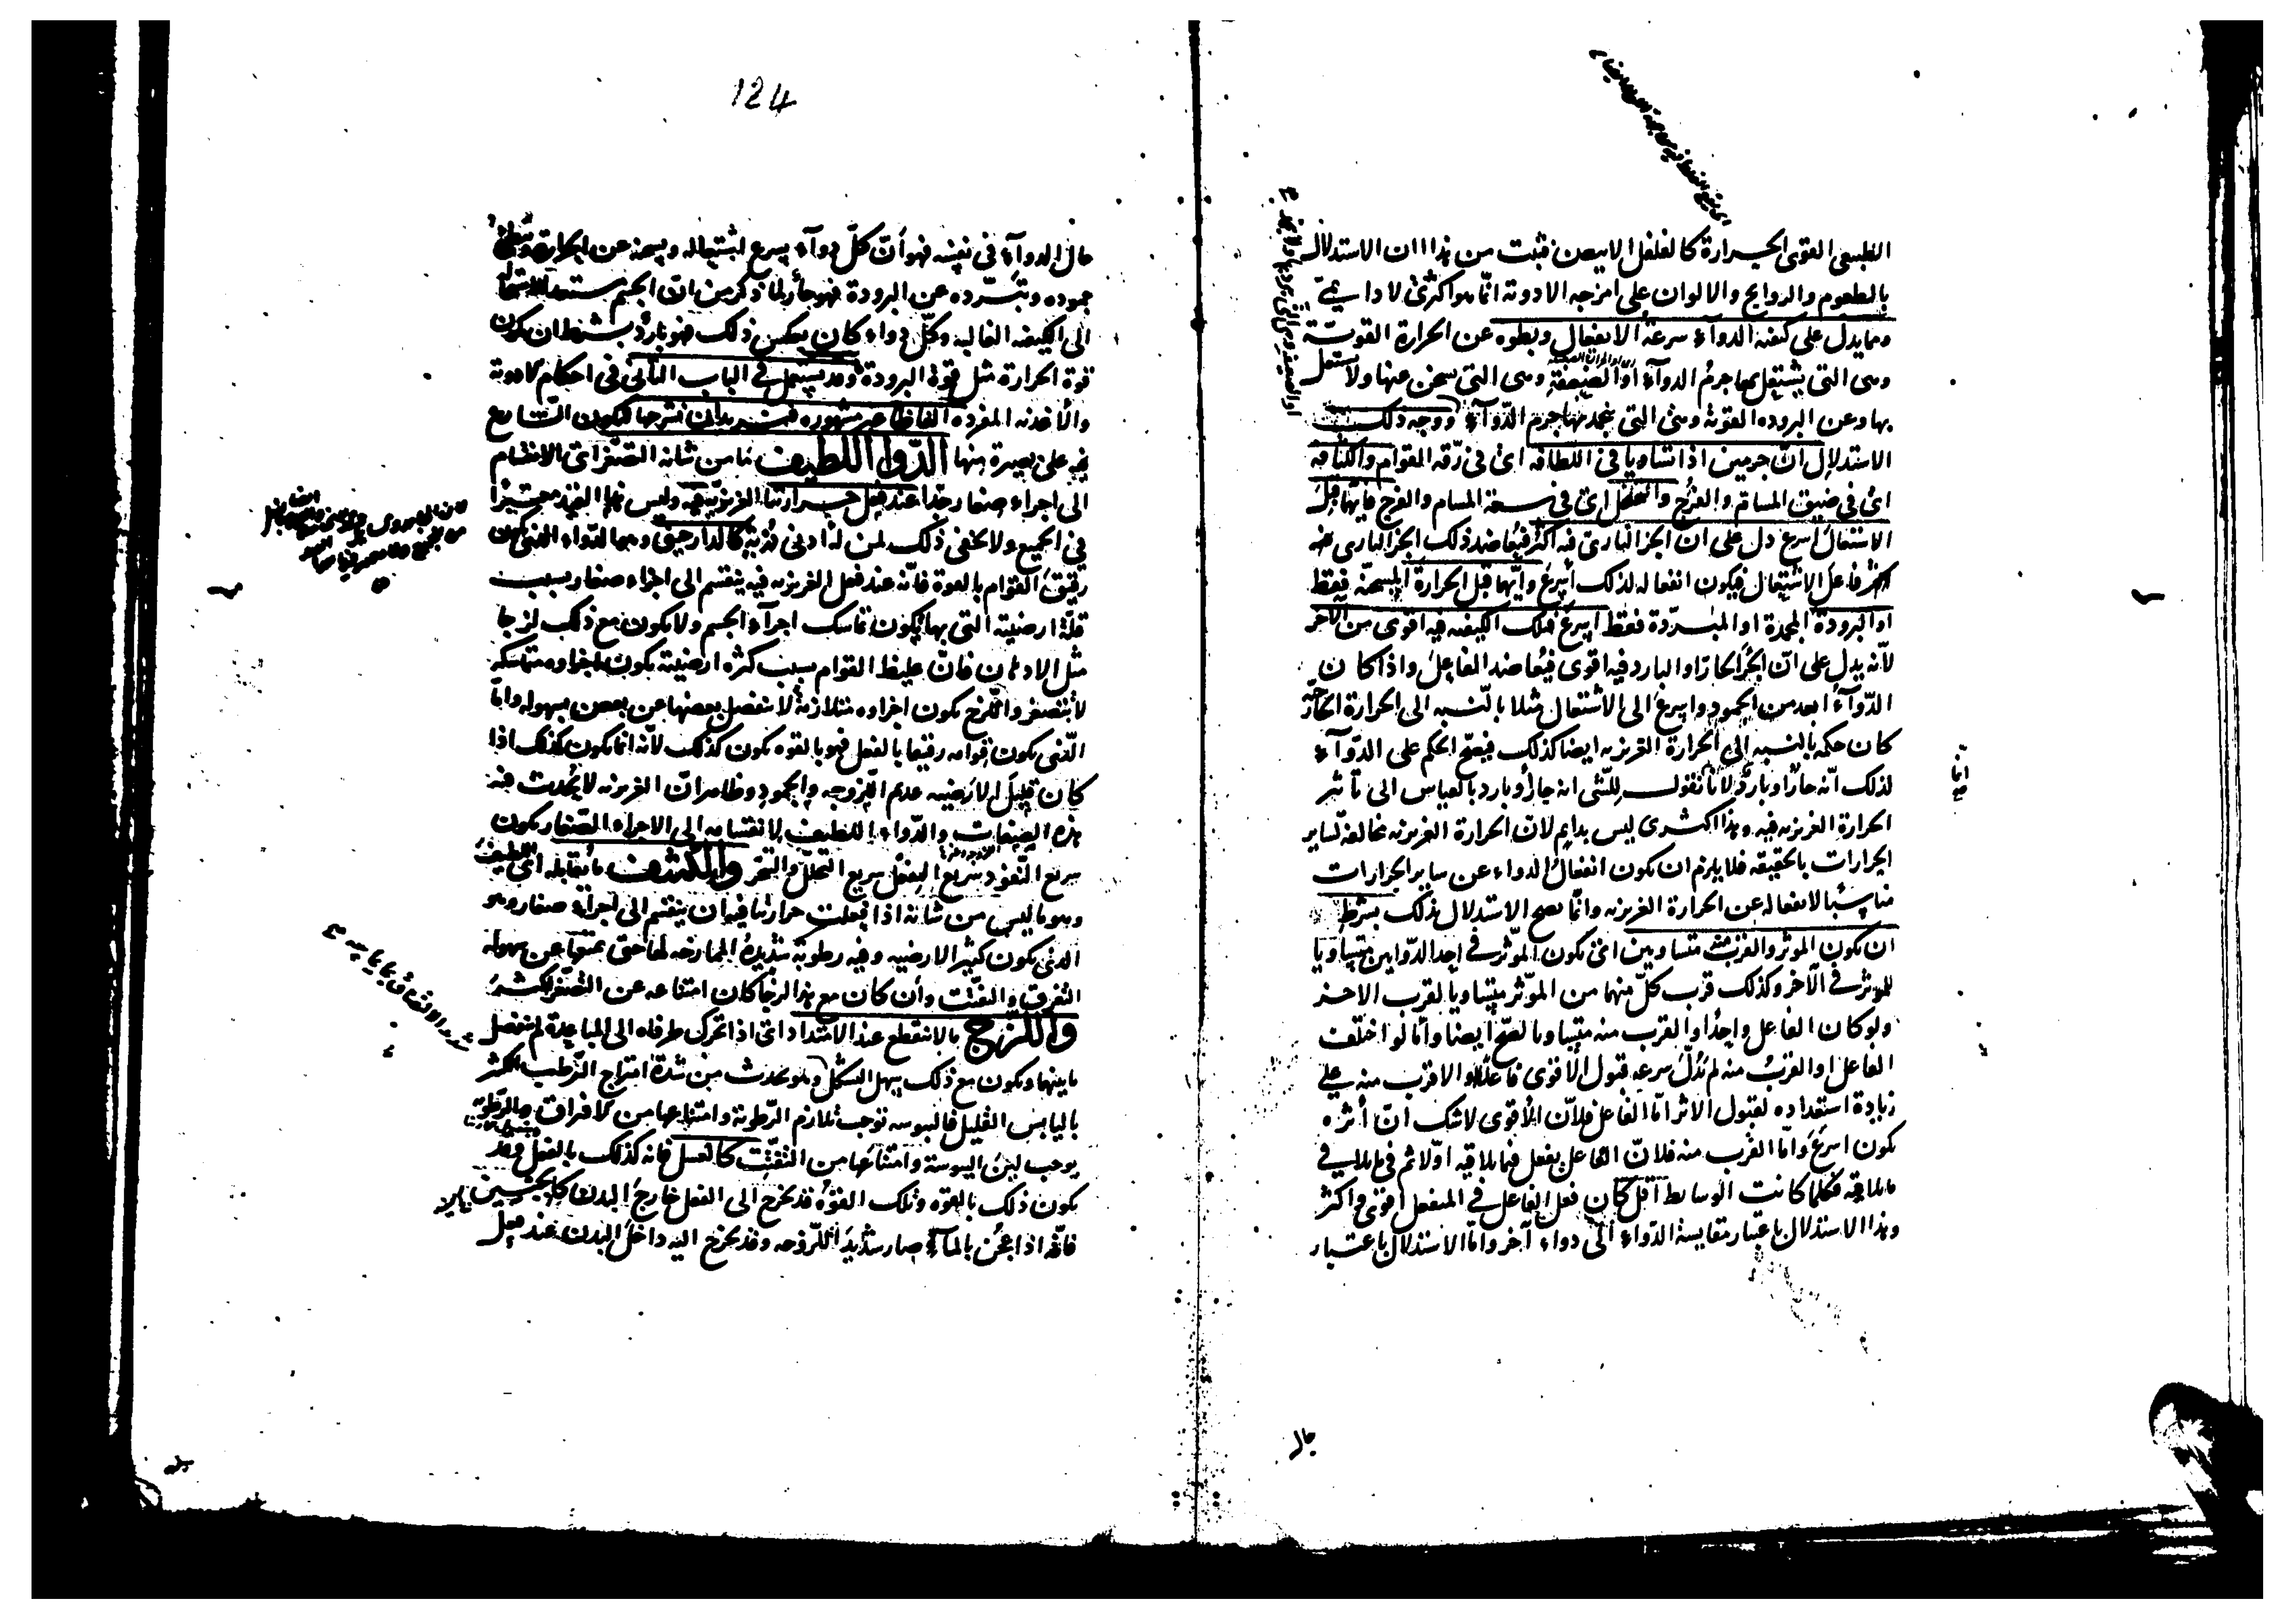 الطبيعى القوى الحرارة كالفلفل الابيض فثبت من هذا ان الاستدلال
بالطعوم والروايح والالوان على امزجه الادوية انما هو اكثرى لا دايمى
ومما يدل على كيفيه الدوآء سرعة الانفعال وبطوه عن الحرارة القوية
وهى التى يشتعل بها جرم الدوآء او الضعيفة وهى التى يسخن عنها ولا يشتعل
بها وعن البروده القوية وهى التى ينجمد بها جرم الدوآء ووجه ذلك
الاستدلال انّ جرمين اذا تساويا فى اللطافه اى فى رقه القوام والكثافه
اى فى ضيق المسام والفرج والتخلخل اى فى سعة المسام والفرج فايهما قبل
الاشتعال اسرع دل على ان الجز النارى فيه اكثر فيعاضد ذلك الجز النارى
فاعل الاشتعال فيكون انفعاله لذلك أسرع وايهما قبل الحرارة المسخنه فقط
او البرودة المجمدة او المبرّدة فقط اسرع فتلك الكيفيه فيه اقوى من الآخر
لأنه يدل على انّ الجزء الحار او البارد فيه اقوى فيعاضد الفاعل واذا كان
الدوآء ابعد من الجمود واسرع الى الاشتعال مثلا بالنسبه الى الحرارة
كان حكمه بالنسبه الى الحرارة الغريزيه ايضا كذلك فيصح الحكم على الدوآء
لذلك انّه حارّ او باردٌ لانا نقول للشى انه حار او بارد بالقياس الى تأثير
الحرارة الغريزيه فيه وهذا اكثرى ليس بدايم لان الحرارة الغريزيه مخالفة لساير
الحرارات بالحقيقه فلا يلزم ان يكون انفعال الدواء عن ساير الحرارات
مناسبا لانفعاله عن الحرارة الغريزيه وانّما يصح الاستدلال بذلك بشرط
ان يكون الموثر والقرب منه متساويين اى يكون الموّثر فى احد الدّوايين متساويا
للموثر فى الآخر وكذلك قرب كلّ منهما من الموّثر متساويا لقرب الاخر
ولو كان الفاعل واحدا والقرب منه متساويا لصحّ ايضا وامّا لو اختلف
الفاعل او القرب منه لم يدلّ سرعه قبول الأقوى فاعلا والاقرب منه على
زيادة استعداده لقبول الاثر امّا الفاعل فلانّ الأقوى لا شك انّ أثره
يكون اسرع وامّا القرب منه فلانّ الفاعل يفعل فيما يلاقيه اوّلا ثم فيما يلى
ما يلاقيه فكلما كانت الوسايط اقل كان فعل الفاعل فى المنفعل اقوى واكثر
وهذا الاستدلال باعتبار مقايسة الدواء الى دواء آخر وامّا الاستدلال باعتبار
حال
124
حال الدوآء فى نفسه فهو أنّ كلّ دوآء يسرع اشتعاله ويسخن عن الحرارة
جموده وتبرّده عن البرودة فهو حارّ لما ذكر من انّ الجسم مستعد
الى الكيفيه الغالبه وكلّ دواء كان بعكس ذلك فهو بارد بشرط ان يكون
قوة الحرارة مثل قوة البرودة وقد يستعمل فى الباب الثانى فى احكام الادوية
والأغذيه المفرده الفاظا غير مشهوره فنريد ان نشرحها ليكون الشارع
فيه على بصيرة منها الدّوا اللطيف ما من شانه التصغر اى الانقسام
الى اجراء صغار جدا عند فعل حرارتنا الغريزيّة فيه وليس هذا القيد معتبرا
فى الجميع ولا يخفى ذلك لمن له ادنى دُربة كالدارصينى وهما الدواء الذى يكون
رقيق القوام بالقوة فانّه عند فعل الغريزيه فيه ينقسم الى اجزاء صغار بسبب
قلّة ارضيته التى بها يكون تماسك اجزآء الجسم ولا يكون مع ذلك لزجا
مثل الادهان فانّ غليظ القوام بسبب كثره ارضيته يكون اجزاوه متماسكه
لا تتصغر واللزج يكون اجزاوه متلازمة لا ينفصل بعضها عن بعض بسهوله وامّا
الّذى يكون قوامه رقيقا بالفعل فهو بالقوه يكون كذلك لأنّه انّما يكون كذلك اذا
كان قليل الارضيه عديم اللزوجه والجمود وظاهر انّ الغريزيه لا يحدث فيه
هذه الصفات والدّواء اللطيف لانقسامه الى الاجزاء الصّغار يكون
سريع النّفوذ سريع الفعل سريع التحلّل والتبخر والكثيف ما يقابله اى اللطيف
وهو ما ليس من شانه اذا فعلت حرارتنا فيه ان ينقسم الى اجزآء صغار وهو
الذى يكون كثير الارضيه وفيه رطوبة شديدة الممازجه لها حتى تمنعها عن سهوله
التفرق والتفتّت وأن كان مع هذا لزجا كان امتناعه عن التصّغر اكثر
واللّزج ما لا ينقطع عند الامتداد اى اذا تحرك طرفاه الى المباعدة لم ينفصل
ما بينهما ويكون مع ذلك سهل التشكل وهو يحدث من شدة امتزاج الرّطب الكثير
باليابس القليل فاليبوسه توجب تلازم الرّطوبة وامتناعها من الافراق والرّطوبة
يوجب لين اليبوسة وامتناعها من التفتّت كالعسل فانه كذلك بالفعل وقد
يكون ذلك بالقوه وتلك القوّه قد يخرج الى الفعل خارج البدن
فانّه اذا عجن بالمآء صار شديد اللّزوجه وقد يخرج اليه داخل البدن عند فعل